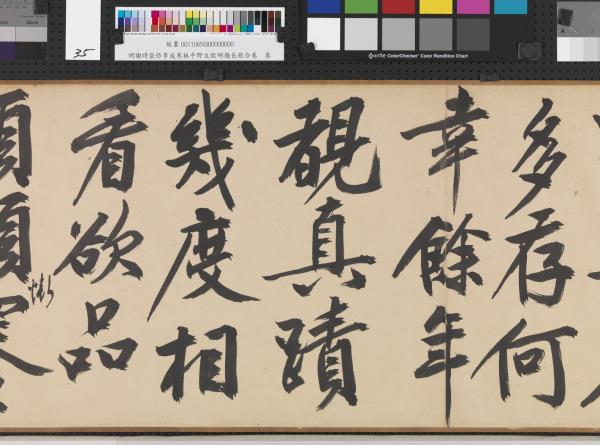 35
故畫 001106N000000000
明謝時臣仿李成寒林平野文徵明題長歌合卷 卷
x-rite ColorChecker Color Rendition Chart
多存何
幸餘年
覩真蹟
幾度相
看欲品